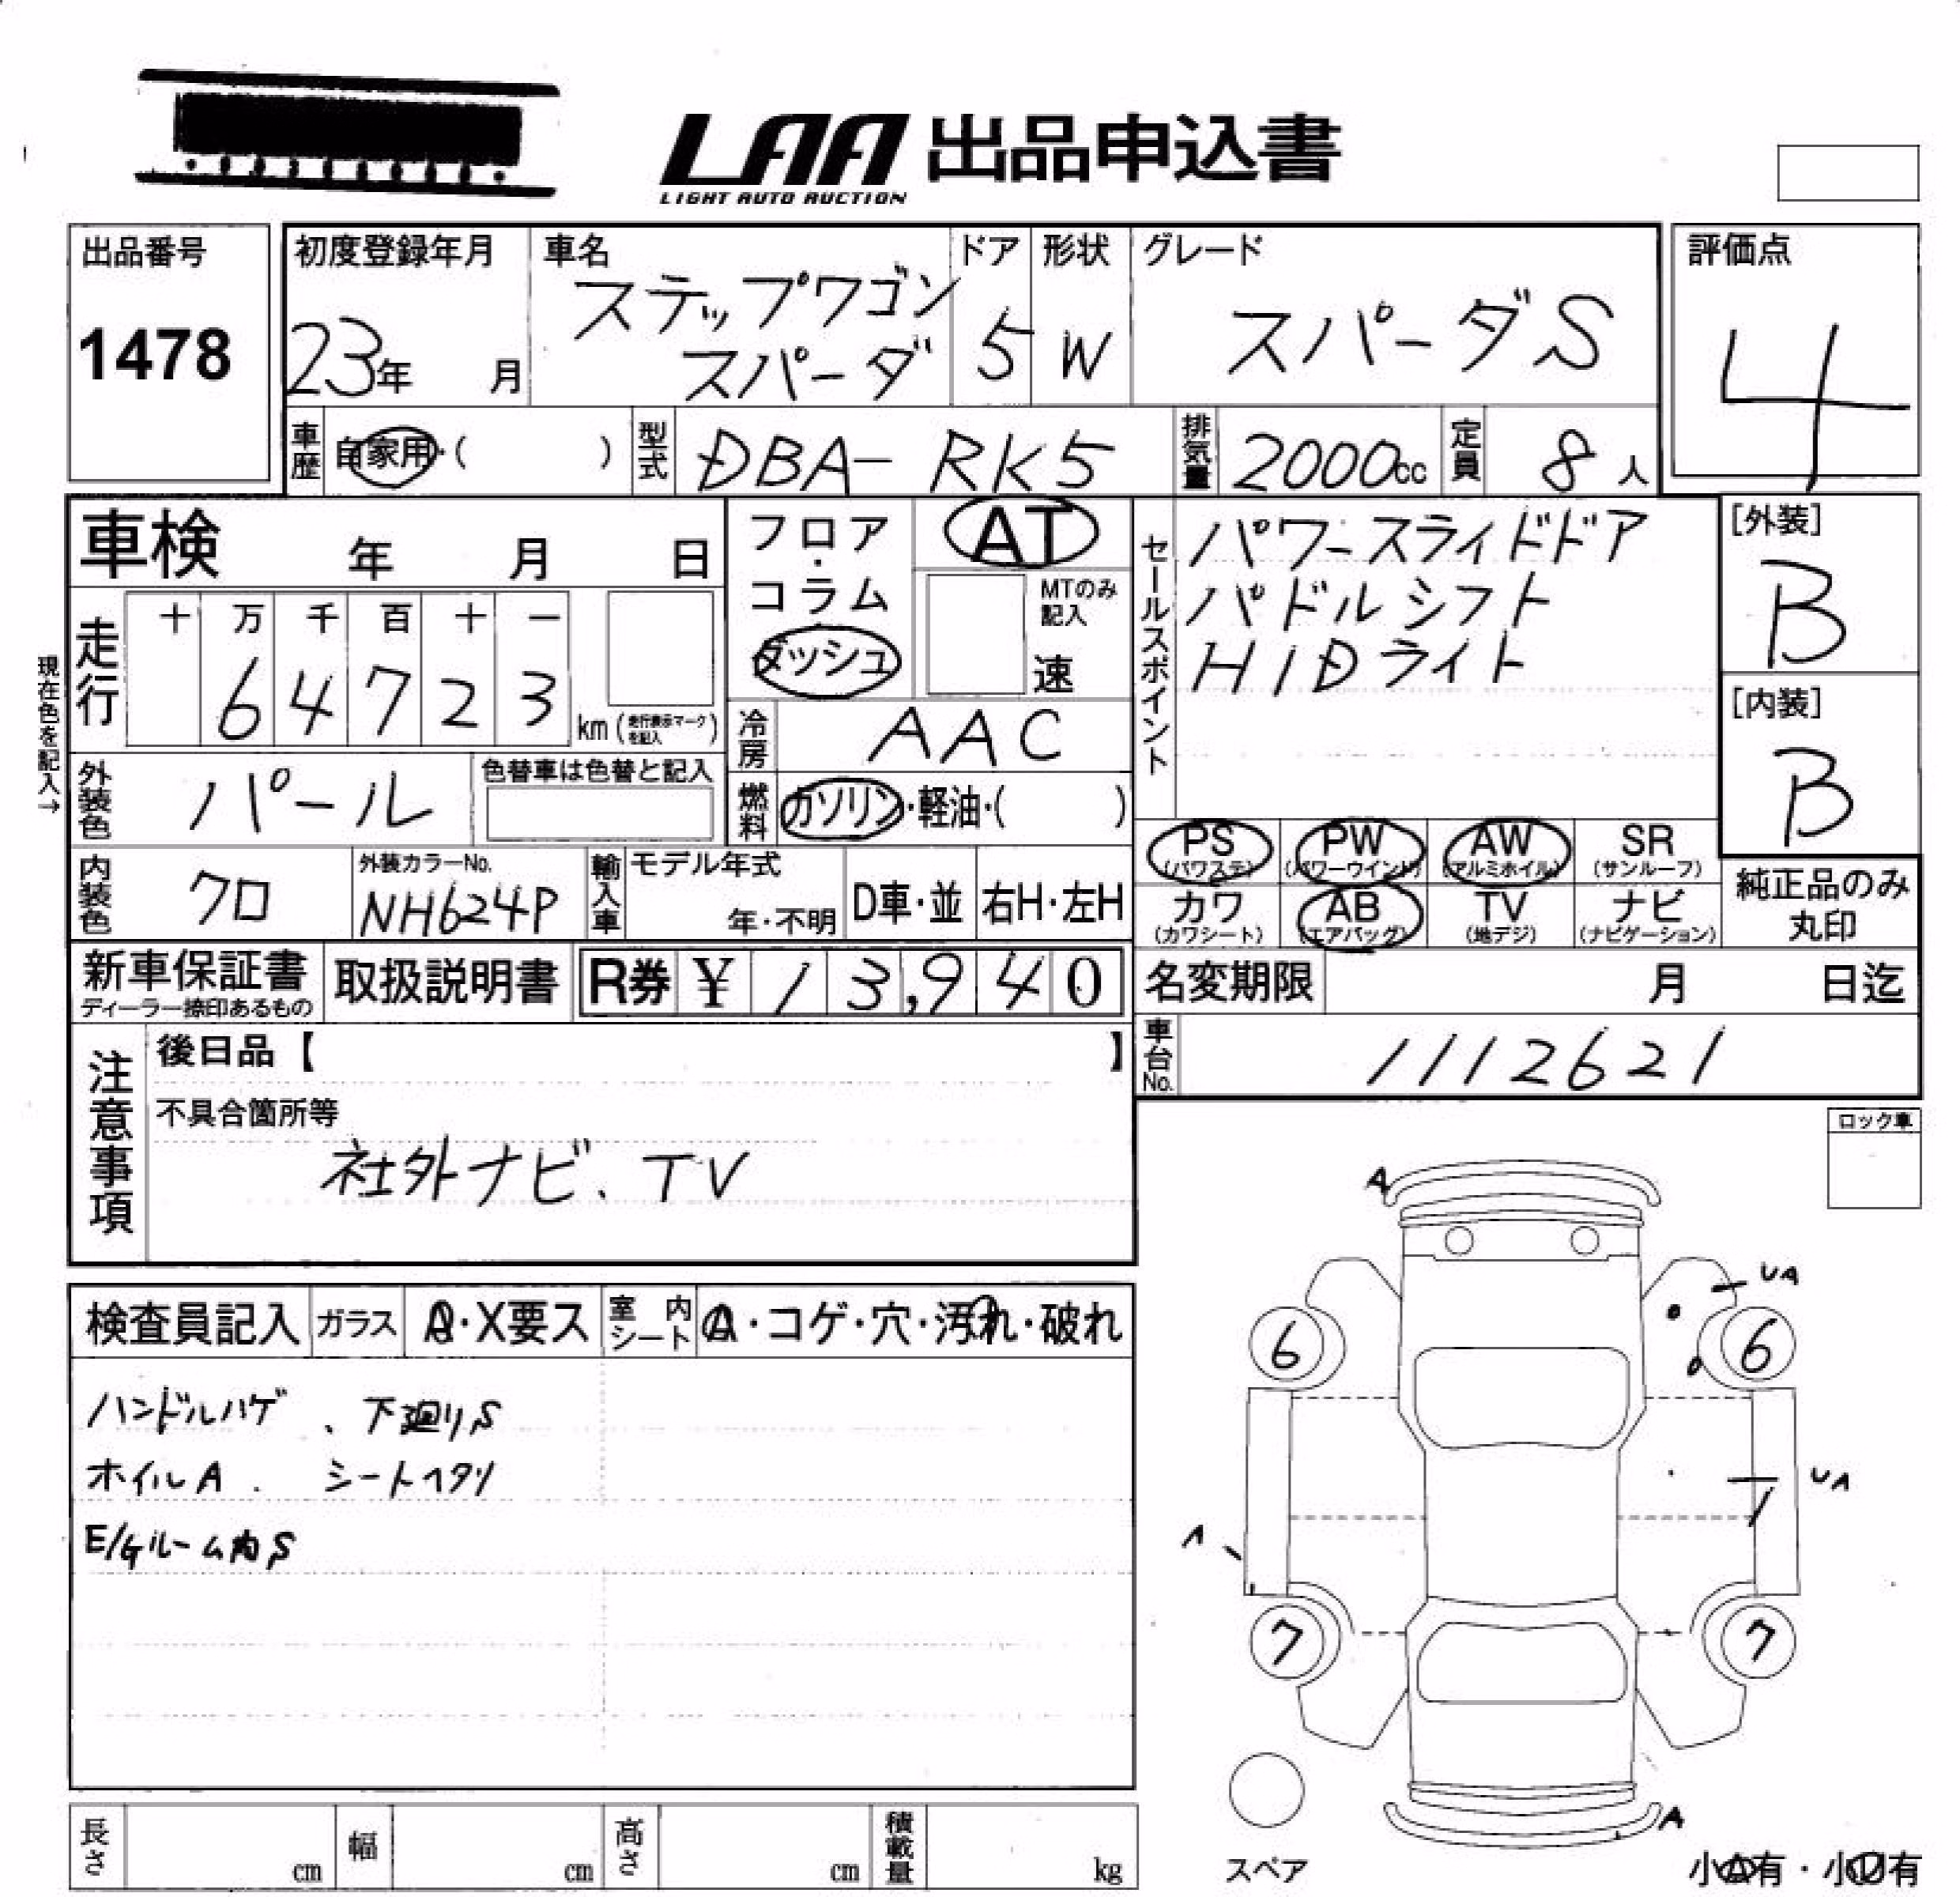 LAA 出品申込書
LIGHT AUTO AUCTION
出品番号
1478
初度登録年月
23年 月
車名
ステップワゴン
スパーダ
ドア
5
形状
W
グレード
スパーダS
評価点
4
車歴 自家用・( )
型式 DBA-RK5
排気量 2000cc
定員 8人
車検 年 月 日
現在色を記入→
走行
十 万 千 百 十 一
6 4 7 2 3
km (走行表示マークを記入)
外装色 パール
色替車は色替と記入
内装色 クロ
外装カラーNo.
NH624P
フロア・コラム
ダッシュ
AT
MTのみ記入
速
冷房 AAC
燃料 ガソリン・軽油・( )
輸入車 モデル年式
年・不明
D車・並
右H・左H
セールスポイント
パワースライドドア
パドルシフト
HIDライト
[外装]
B
[内装]
B
PS (パワステ)
PW (パワーウインド)
AW (アルミホイル)
SR (サンルーフ)
カワ (カワシート)
AB (エアバッグ)
TV (地デジ)
ナビ (ナビゲーション)
純正品のみ
丸印
新車保証書
ディーラー捺印あるもの
取扱説明書
R券 ¥ 13,940
名変期限 月 日迄
車台No. 1112621
注意事項
後日品【 】
不具合箇所等
社外ナビ、TV
ロック車
検査員記入
ガラス A・X要ス
室内シート A・コゲ・穴・汚れ・破れ
ハンドルハゲ、下廻りS
ホイルA. シートヘタリ
E/Gルーム内S
A
UA
6
6
UA
A
7
7
A
スペア
小A有・小U有
長さ cm
幅 cm
高さ cm
積載量 kg